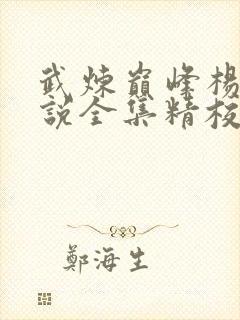 武煉巔峰楊
說全集精校
鄭海生